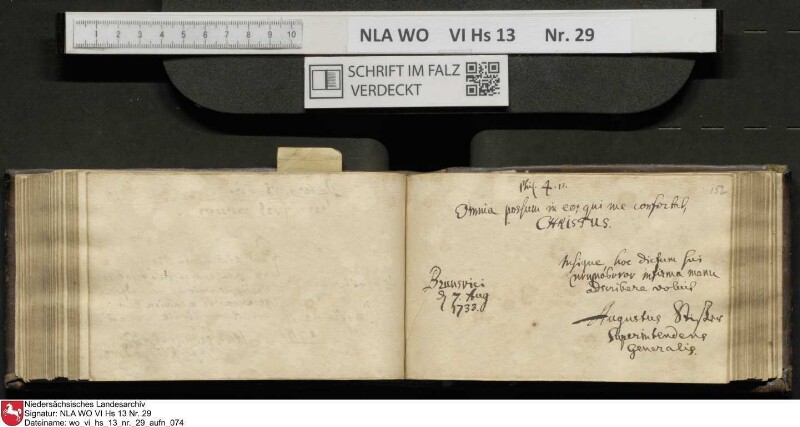 1 2 3 4 5 6 7 8 9 10
NLA WO VI Hs 13 Nr. 29
SCHRIFT IM FALZ
VERDECKT
152
Phil. 4.
Omnia possum in eo, qui me confortat,
CHRISTUS.
Insigne hoc dictum sui
infirma manu
adscribere voluit
Brunsvici
d 7. Aug
1733.
Augustus Stisser
Superintendens
Generalis.
Niedersächsisches Landesarchiv
Signatur: NLA WO VI Hs 13 Nr. 29
Dateiname: wo_vi_hs_13_nr._29_aufn_074